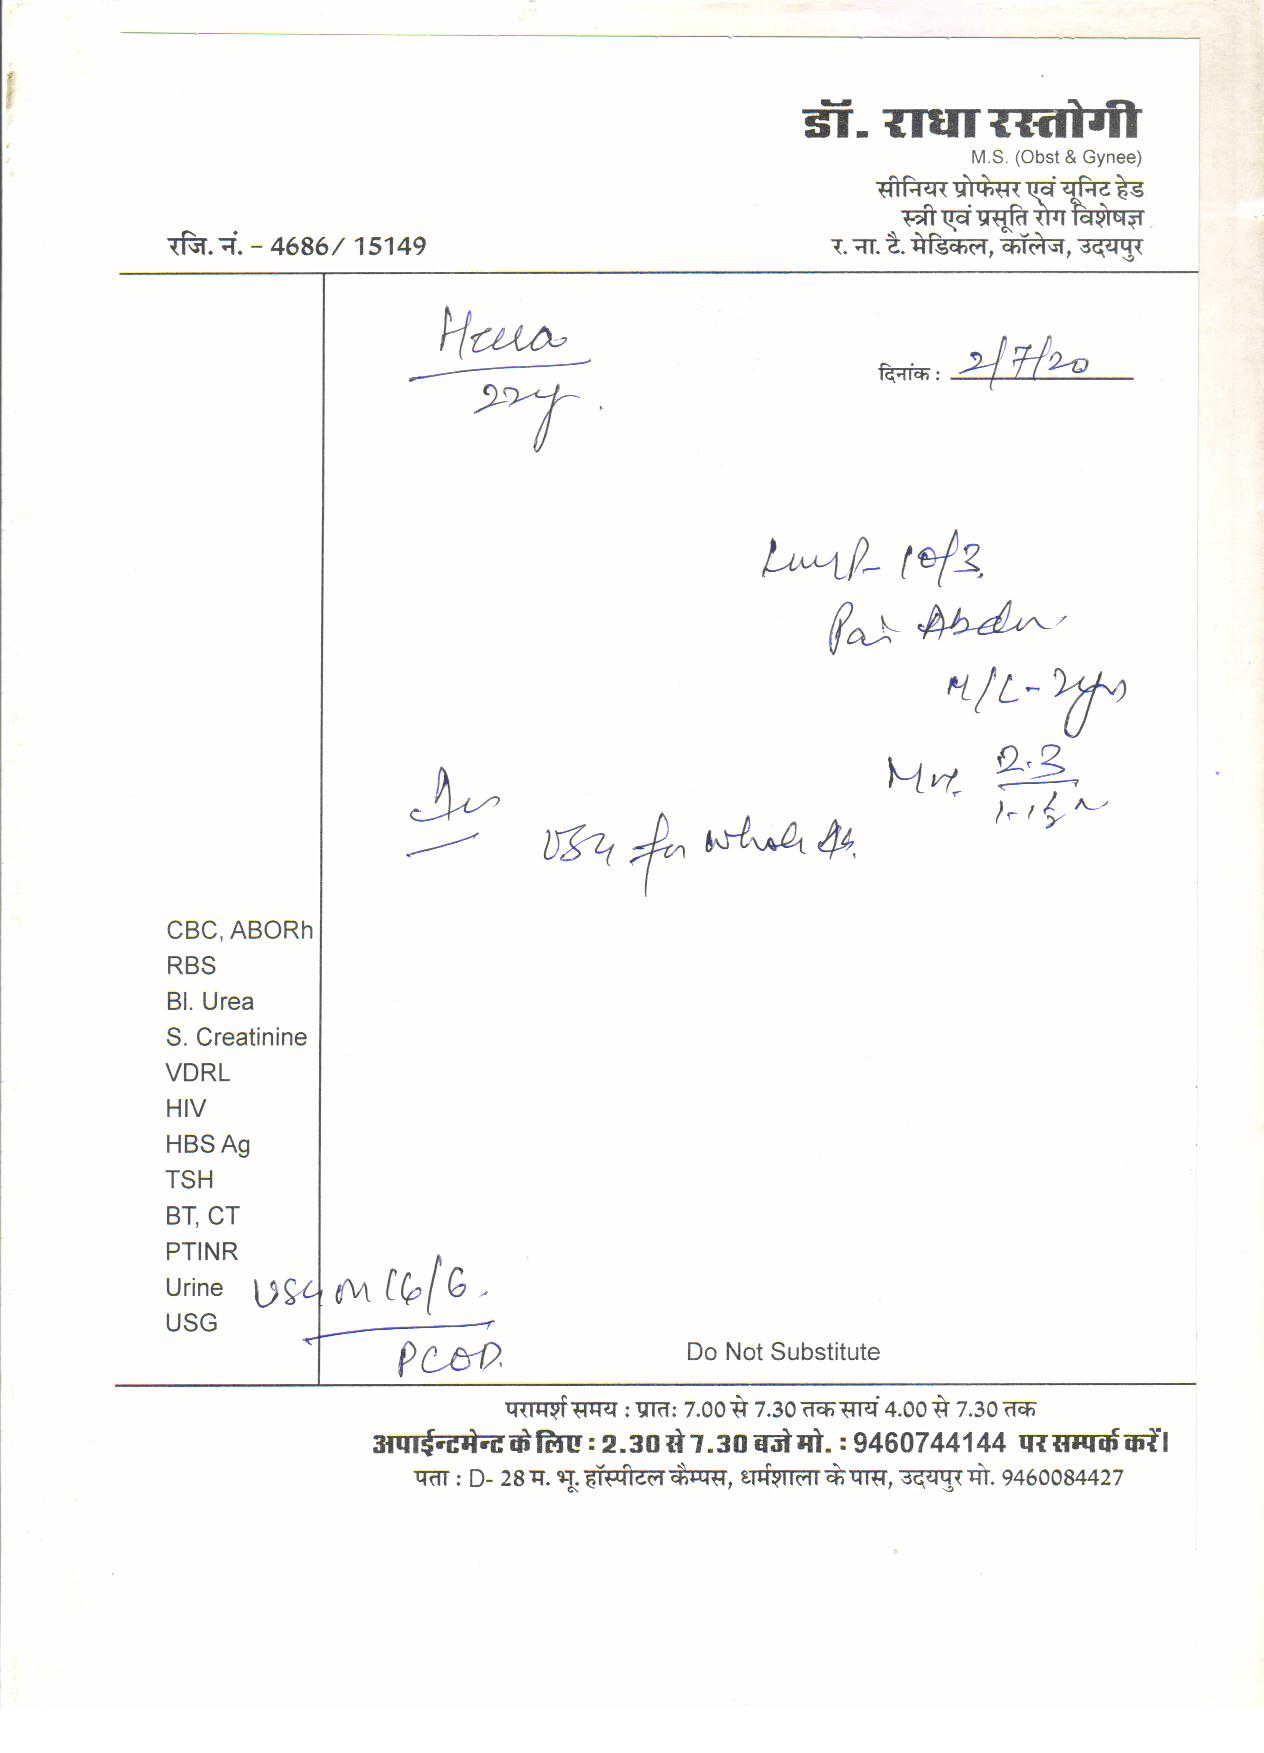 डॉ. राधा रस्तोगी
M.S. (Obst & Gynee)
सीनियर प्रोफेसर एवं यूनिट हेड
स्त्री एवं प्रसूति रोग विशेषज्ञ
रजि. नं. - 4686/ 15149
र. ना. टै. मेडिकल, कॉलेज, उदयपुर
Heena
दिनांक : 2/7/20
22y
LMP- 10/3
Pain Abdo
M/L - 2yrs
2-3
USG for whole
CBC, ABORh
RBS
Bl. Urea
S. Creatinine
VDRL
HIV
HBS Ag
TSH
BT, CT
PTINR
Urine
USG on 16/6.
USG
PCOD.
Do Not Substitute
परामर्श समय : प्रातः 7.00 से 7.30 तक सायं 4.00 से 7.30 तक
अपाईन्टमेन्ट के लिए : 2.30 से 7.30 बजे मो. : 9460744144 पर सम्पर्क करें।
पता : D- 28 म. भू. हॉस्पीटल कैम्पस, धर्मशाला के पास, उदयपुर मो. 9460084427